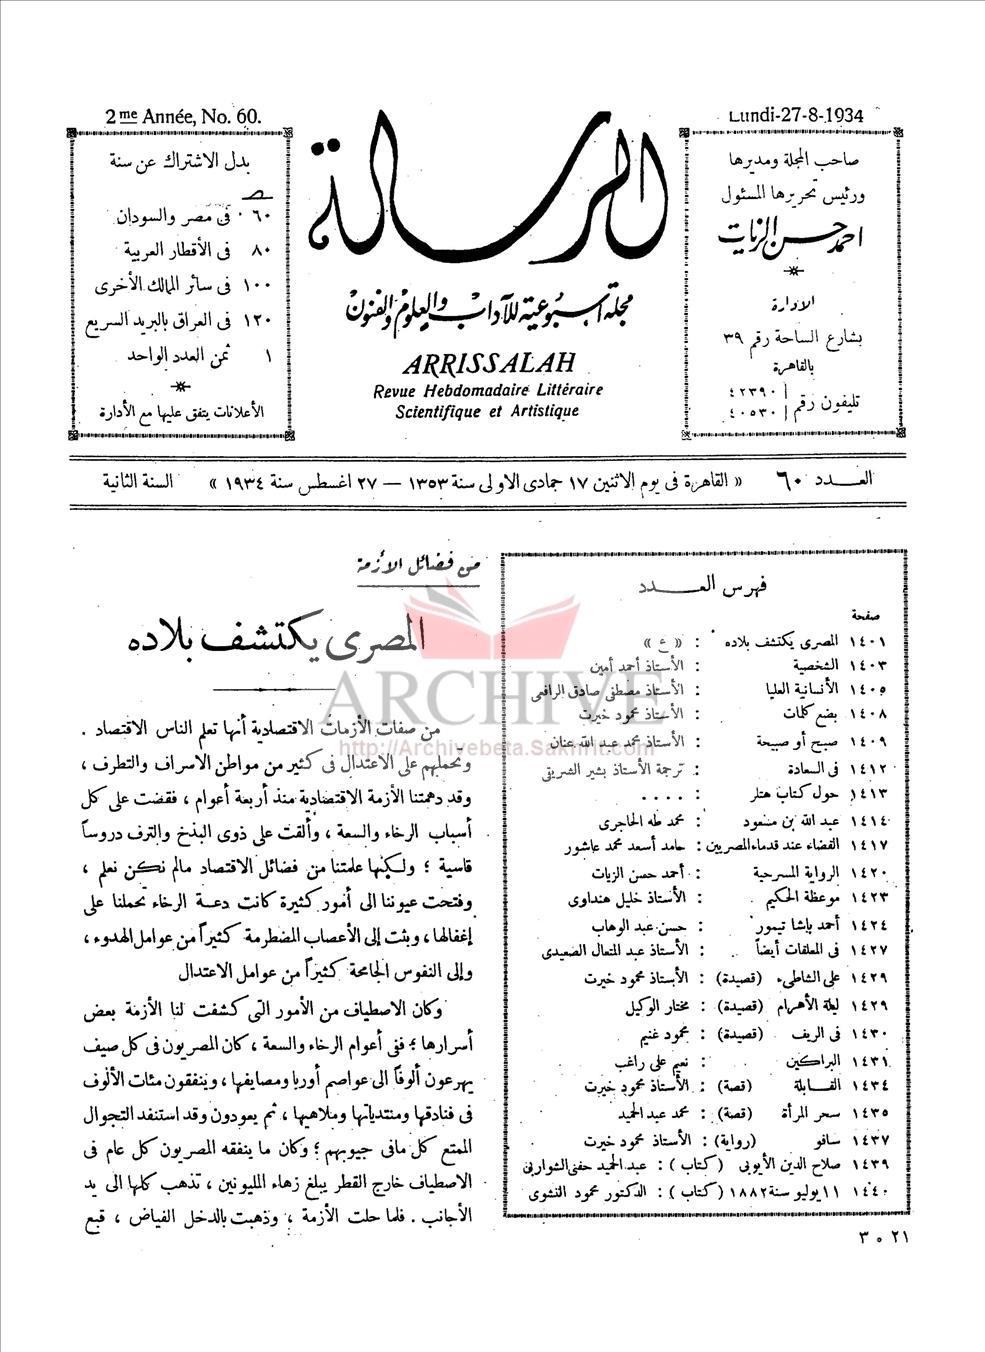 2me Année, No. 60.
Lundi-27-8-1934
صاحب المجلة ومديرها
ورئيس تحريرها المسئول
احمد حسن الزيات
الادارة
بشارع الساحة رقم ٣٩
بالقاهرة
تليفون رقم ٤٢٣٩٠
٤٠٥٣٠
الرسالة
مجلة أسبوعية للآداب والعلوم والفنون
ARRISSALAH
Revue Hebdomadaire Littéraire
Scientifique et Artistique
بدل الاشتراك عن سنة
ص
٦٠ فى مصر والسودان
٨٠ فى الأقطار العربية
١٠٠ فى سائر الممالك الأخرى
١٢٠ فى العراق بالبريد السريع
١ ثمن العدد الواحد
الأعلانات يتفق عليها مع الأدارة
العـــدد ٦٠ « القاهرة فى يوم الاثنين ١٧ جمادى الاولى سنة ١٣٥٣ — ٢٧ اغسطس سنة ١٩٣٤ » السنة الثانية
فهرس العـــدد
صفحة
١٤٠١ المصرى يكتشف بلاده : « ع »
١٤٠٣ الشخصية : الأستاذ أحمد أمين
١٤٠٥ الأنسانية العليا : الأستاذ مصطفى صادق الرافعى
١٤٠٨ بضع كلمات : الأستاذ محمود خيرت
١٤٠٩ صبح أو صبيحة : الأستاذ محمد عبد الله عنان
١٤١٢ فى السعادة : ترجمة الأستاذ بشير الشريقى
١٤١٣ حول كتاب هتلر : . . . .
١٤١٤ عبد الله بن مسعود : محمد طه الحاجرى
١٤١٧ القضاء عند قدماء المصريين : حامد أسعد محمد عاشور
١٤٢٠ الرواية المسرحية : أحمد حسن الزيات
١٤٢٣ موعظة الحكيم : الأستاذ خليل هنداوى
١٤٢٤ أحمد باشا تيمور : حسن عبد الوهاب
١٤٢٧ فى المعلقات أيضاً : الأستاذ عبد المتعال الصعيدى
١٤٢٩ على الشاطىء (قصيدة) : الأستاذ محمود خيرت
١٤٢٩ ليلة الأهرام (قصيدة) : مختار الوكيل
١٤٣٠ فى الريف (قصيدة) : محمود غنيم
١٤٣١ البراكين : نعيم على راغب
١٤٣٤ القـــابلة (قصة) : الأستاذ محمود خيرت
١٤٣٥ سحر المرأة (قصة) : محمد عبد الحميد
١٤٣٧ سافو (رواية) : الأستاذ محمود خيرت
١٤٣٩ صلاح الدين الأيوبى (كتاب) : عبد الحميد حفنى الشواربى
١٤٤٠ ١١ يوليو سنة ١٨٨٢ (كتاب) : الدكتور محمود النشوى
٢١ ٥ ٣
من فضائل الأزمة
المصرى يكتشف بلاده
ARCHIVE
http://Archivebeta.Sakhrit.com
من صفات الأزمات الاقتصادية أنها تعلم الناس الاقتصاد .
وتحملهم على الاعتدال فى كثير من مواطن الاسراف والتطرف ،
وقد دهمتنا الأزمة الاقتصادية منذ أربعة أعوام ، فقضت على كل
أسباب الرخاء والسعة ، وألقت على ذوى البذخ والترف دروساً
قاسية ؛ ولكنها علمتنا من فضائل الاقتصاد مالم نكن نعلم ،
وفتحت عيوننا الى أمور كثيرة كانت دعة الرخاء تحملنا على
إغفالها ، وبثت إلى الأعصاب المضطرمة كثيراً من عوامل الهدوء ،
وإلى النفوس الجامحة كثيراً من عوامل الاعتدال
وكان الاصطياف من الأمور التى كشفت لنا الأزمة بعض
أسرارها ؛ ففى أعوام الرخاء والسعة ، كان المصريون فى كل صيف
يهرعون ألوفاً الى عواصم أوربا ومصايفها ، وينفقون مئات الألوف
فى فنادقها ومنتدياتها وملاهيها ، ثم يعودون وقد استنفد التجوال
الممتع كل مافى جيوبهم ؛ وكان ما ينفقه المصريون كل عام فى
الاصطياف خارج القطر يبلغ زهاء المليونين ، تذهب كلها الى يد
الأجانب . فلما حلت الأزمة ، وذهبت بالدخل الفياض ، قبع